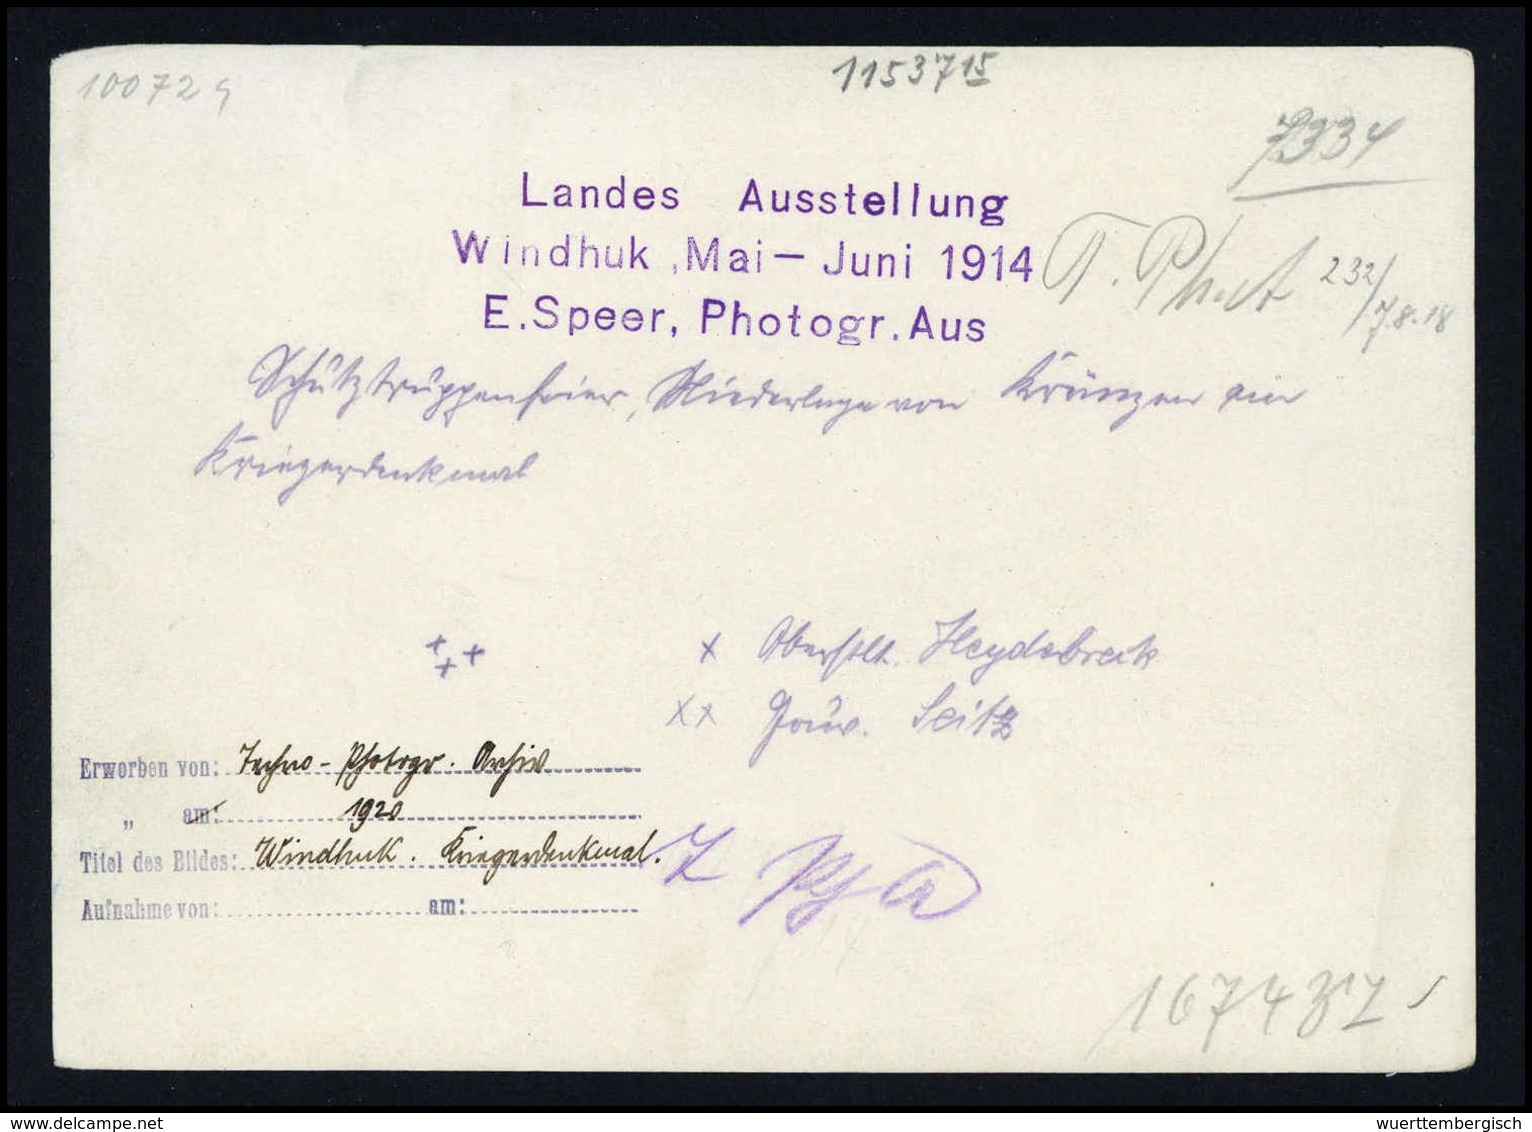 100729
1153715
7334
Landes Ausstellung
Windhuk, Mai — Juni 1914
E. Speer, Photogr. Aus
T. Phot 232/7.8.18
Schutztruppenfeier, Niederlage von Kränzen am
Kriegerdenkmal
+ + +
x Oberstlt. Heydebreck
xx Gouv. Seitz
Erworben von: Techno-Photogr. Archiv
„ am: 1920
Titel des Bildes: Windhuk. Kriegerdenkmal.
Aufnahme von: am:
T Ph A
wuerttembergisch